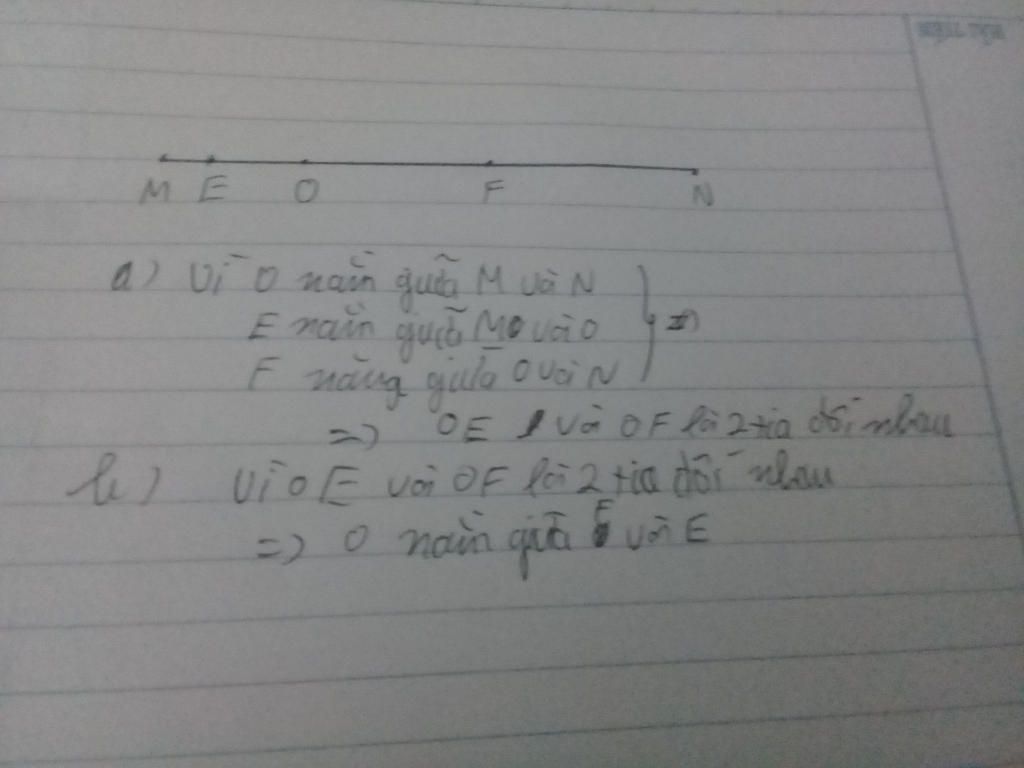 M E O F N
a) Vì O nằm giữa M và N
E nằm giữa M và O
F nằng giữa O và N
=> OE và OF là 2 tia đối nhau
b) Vì OE và OF là 2 tia đối nhau
=> O nằm giữa F và E